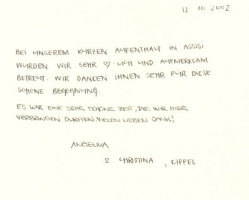 12.10.2002
BEI UNSEREM KURZEN AUFENTHALT IN ASSISI
WURDEN WIR SEHR ♡-LICH UND AUFMERKSAM
BETREUT. WIR DANKEN IHNEN SEHR FÜR DIESE
SCHÖNE BEGEGNUNG.
ES WAR EINE SEHR SCHÖNE ZEIT, DIE WIR HIER
VERBRINGEN DURFTEN. VIELEN LIEBEN DANK!
CHRISTINA, KIPPEL